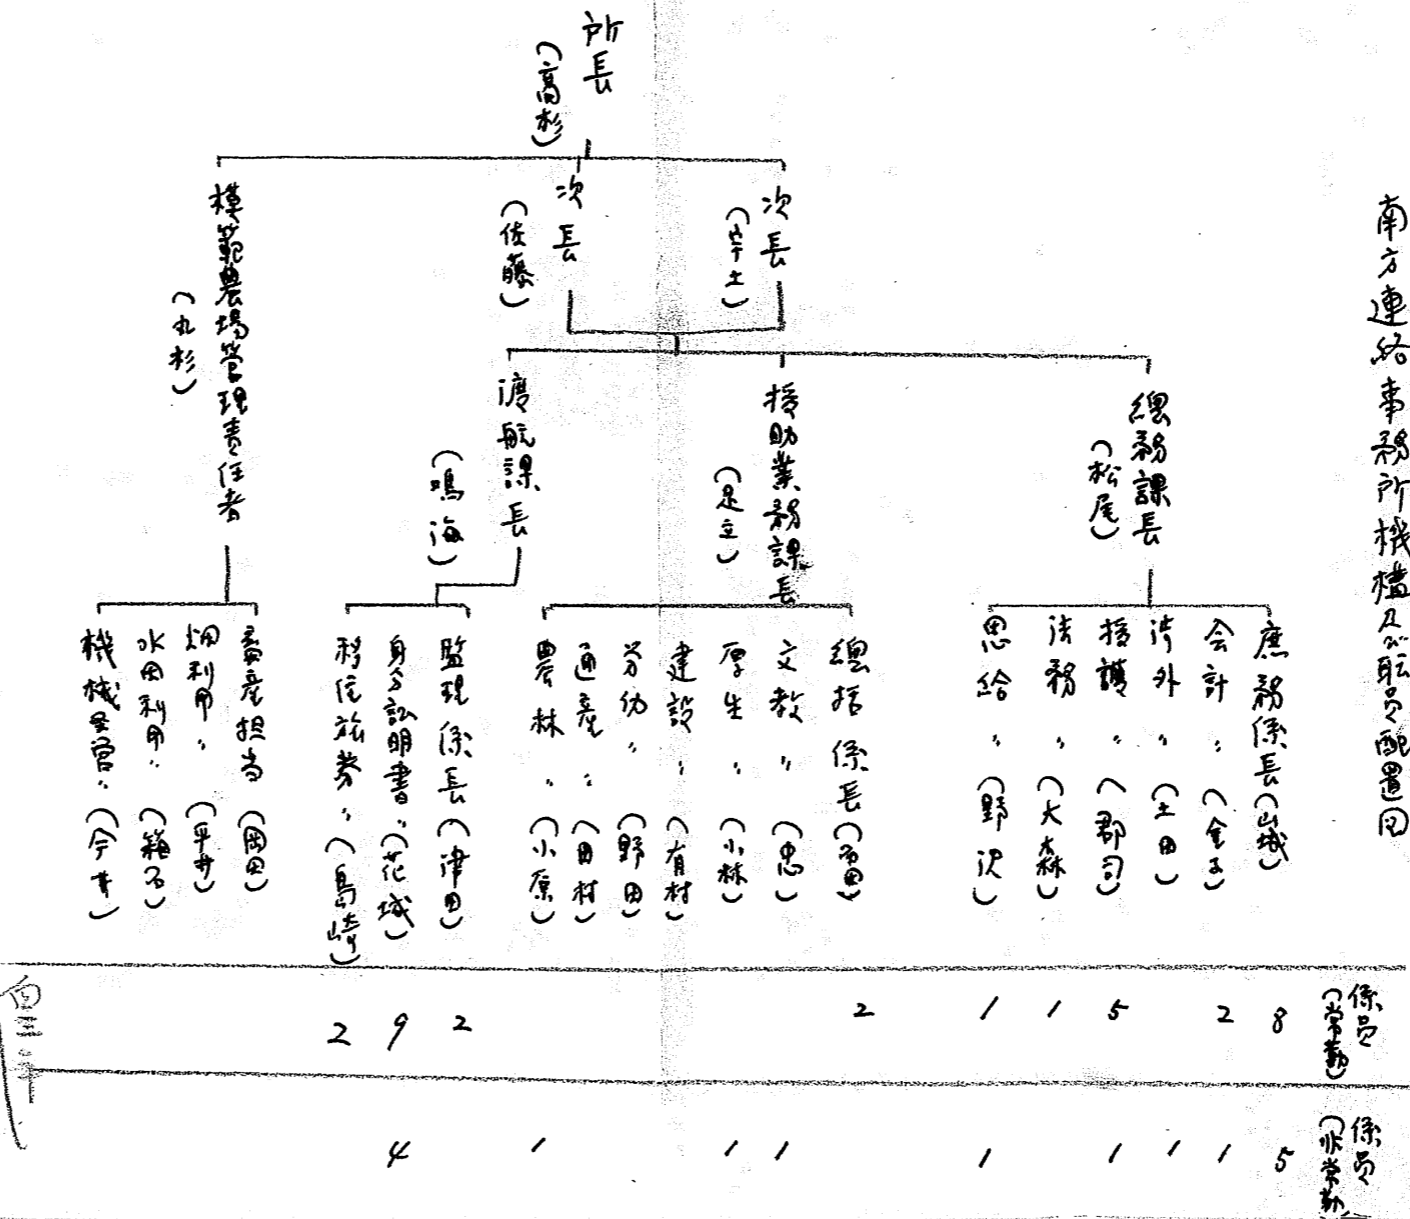 南方連絡事務所機構及び職員配置図
所長
(高杉)
次長
(宇土)
次長
(佐藤)
模範農場管理責任者
(丸杉)
總務課長
(松尾)
援助業務課長
(足立)
渡航課長
(鳴海)
庶務係長(山城)
会計〃(金子)
渉外〃(土田)
援護〃(郡司)
法務〃(大森)
恩給〃(野沢)
總括係長(富田)
文教〃(忠)
厚生〃(小林)
建設〃(有村)
労働〃(野田)
通産〃(田村)
農林〃(小原)
監理係長(津田)
身分証明書〃(花城)
移住旅券〃(島崎)
畜産担当(岡田)
畑利用〃(平井)
水田利用〃(箱石)
機械〃(今井)
係員
(常勤)
8
2
5
1
1
2
2
9
2
係員
(非常勤)
5
1
1
1
1
1
1
1
4